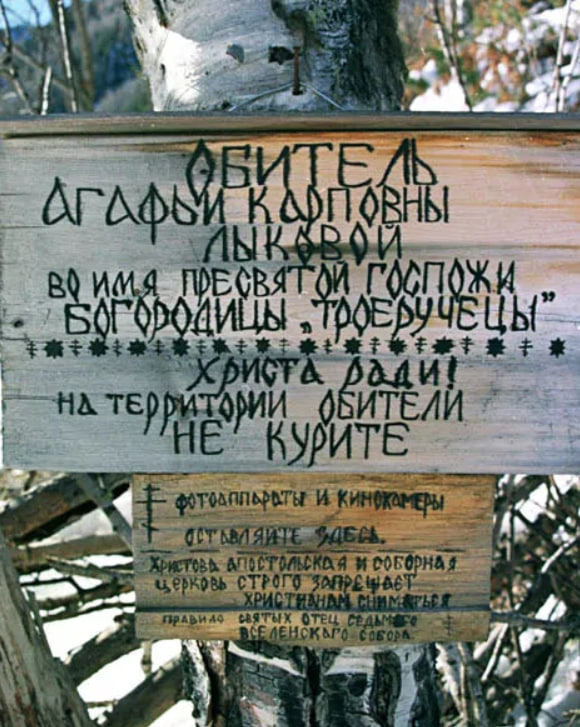 ОБИТЕЛЬ
АГАФЬИ КАРПОВНЫ
ЛЫКОВОЙ
ВО ИМЯ ПРЕСВЯТОЙ ГОСПОЖИ
БОГОРОДИЦЫ „ТРОЕРУЧЕЦЫ"
ХРИСТА РАДИ!
НА ТЕРРИТОРИИ ОБИТЕЛИ
НЕ КУРИТЕ
ФОТОАППАРАТЫ И КИНОКАМЕРЫ
ОСТАВЛЯЙТЕ ЗДЕСЬ.
ХРИСТОВА АПОСТОЛЬСКАЯ И СОБОРНАЯ
ЦЕРКОВЬ СТРОГО ЗАПРЕЩАЕТ
ХРИСТИАНАМ СНИМАТЬСЯ
ПРАВИЛО СВЯТЫХ ОТЕЦ СЕДЬМАГО
ВСЕЛЕНСКАГО СОБОРА